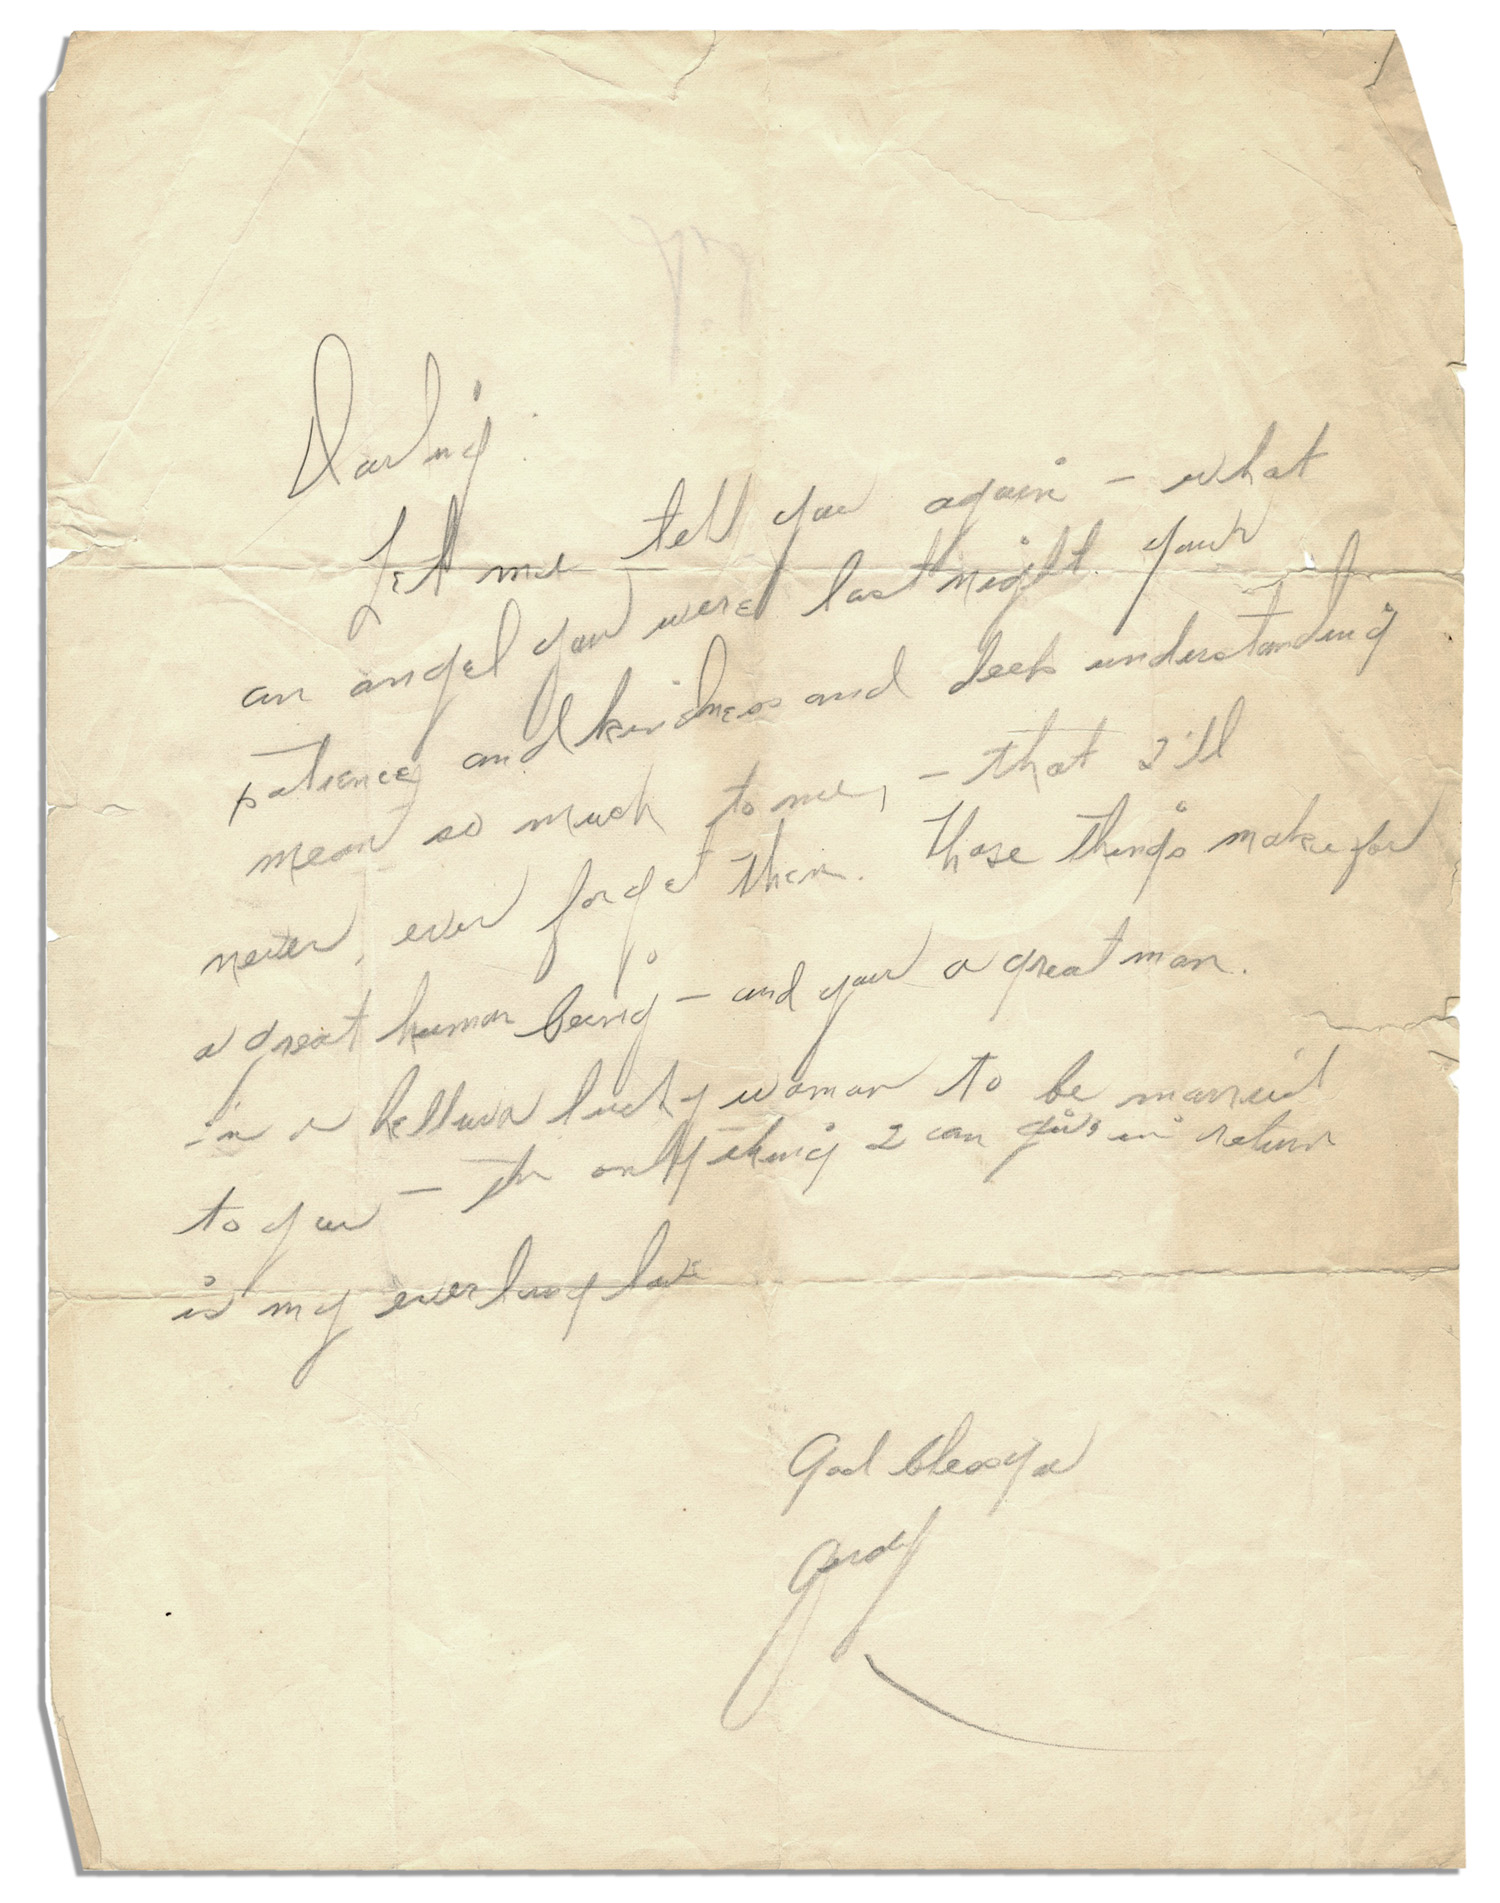 Darling.
Let me tell you again - what
an angel you were last night. your
patience and kindness and deep understanding
mean so much to me, - that I'll
never, ever forget them. Those things make for
a great human being - and your a great man.
i'm a helluva lucky woman to be married
to you - The only thing I can give in return
is my everlong love
God bless you